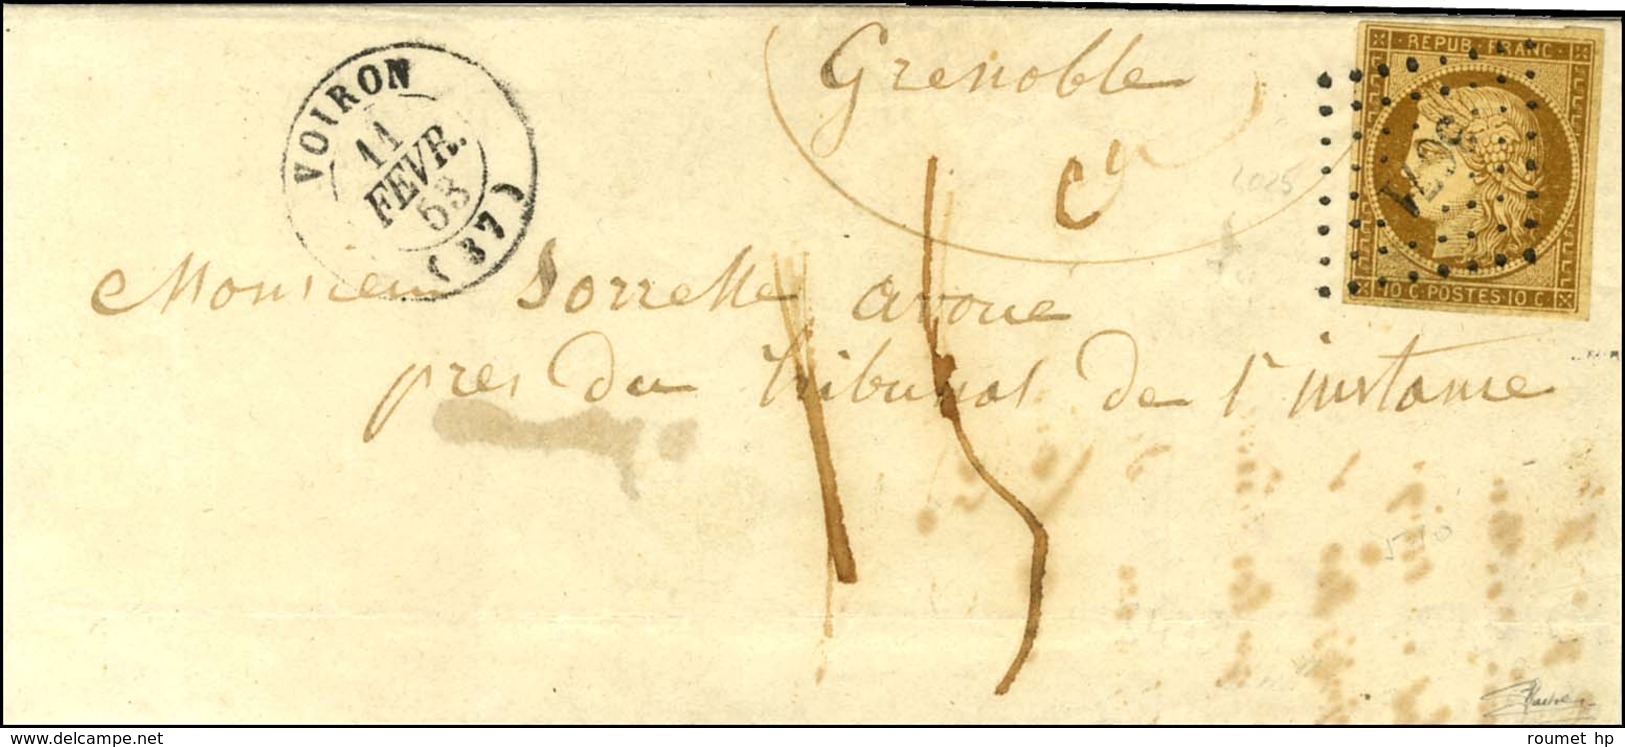 VOIRON
11
FEVR.
53
(37)
Grenoble
REPUB. FRANC.
10 C. POSTES 10 C.
Monsieur Sorrelle avoué
près du tribunal de 1r instance
15
www.delcampe.net
roumet hp